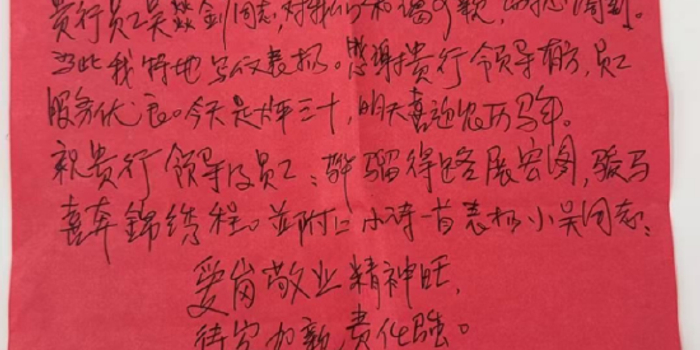 贵行员工吴燚剑同志,对我们和谒可亲,
为此我特地写仪表扬。感谢贵行领导有方,员工
服务优良。今天是大年三十,明天喜迎农历马年。
祝贵行领导及员工:骅骝得路展宏图,骏马
喜奔錦绣程。并附上小诗一首表扬小吴同志:
爱岗敬业精神旺,
待客如亲责任强。